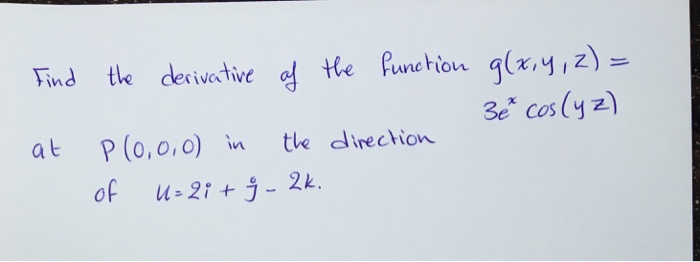 Find the derivative of the function g(x,y,z) =
3eˣ cos(yz)
at P(0,0,0) in the direction
of u=2i + j - 2k.